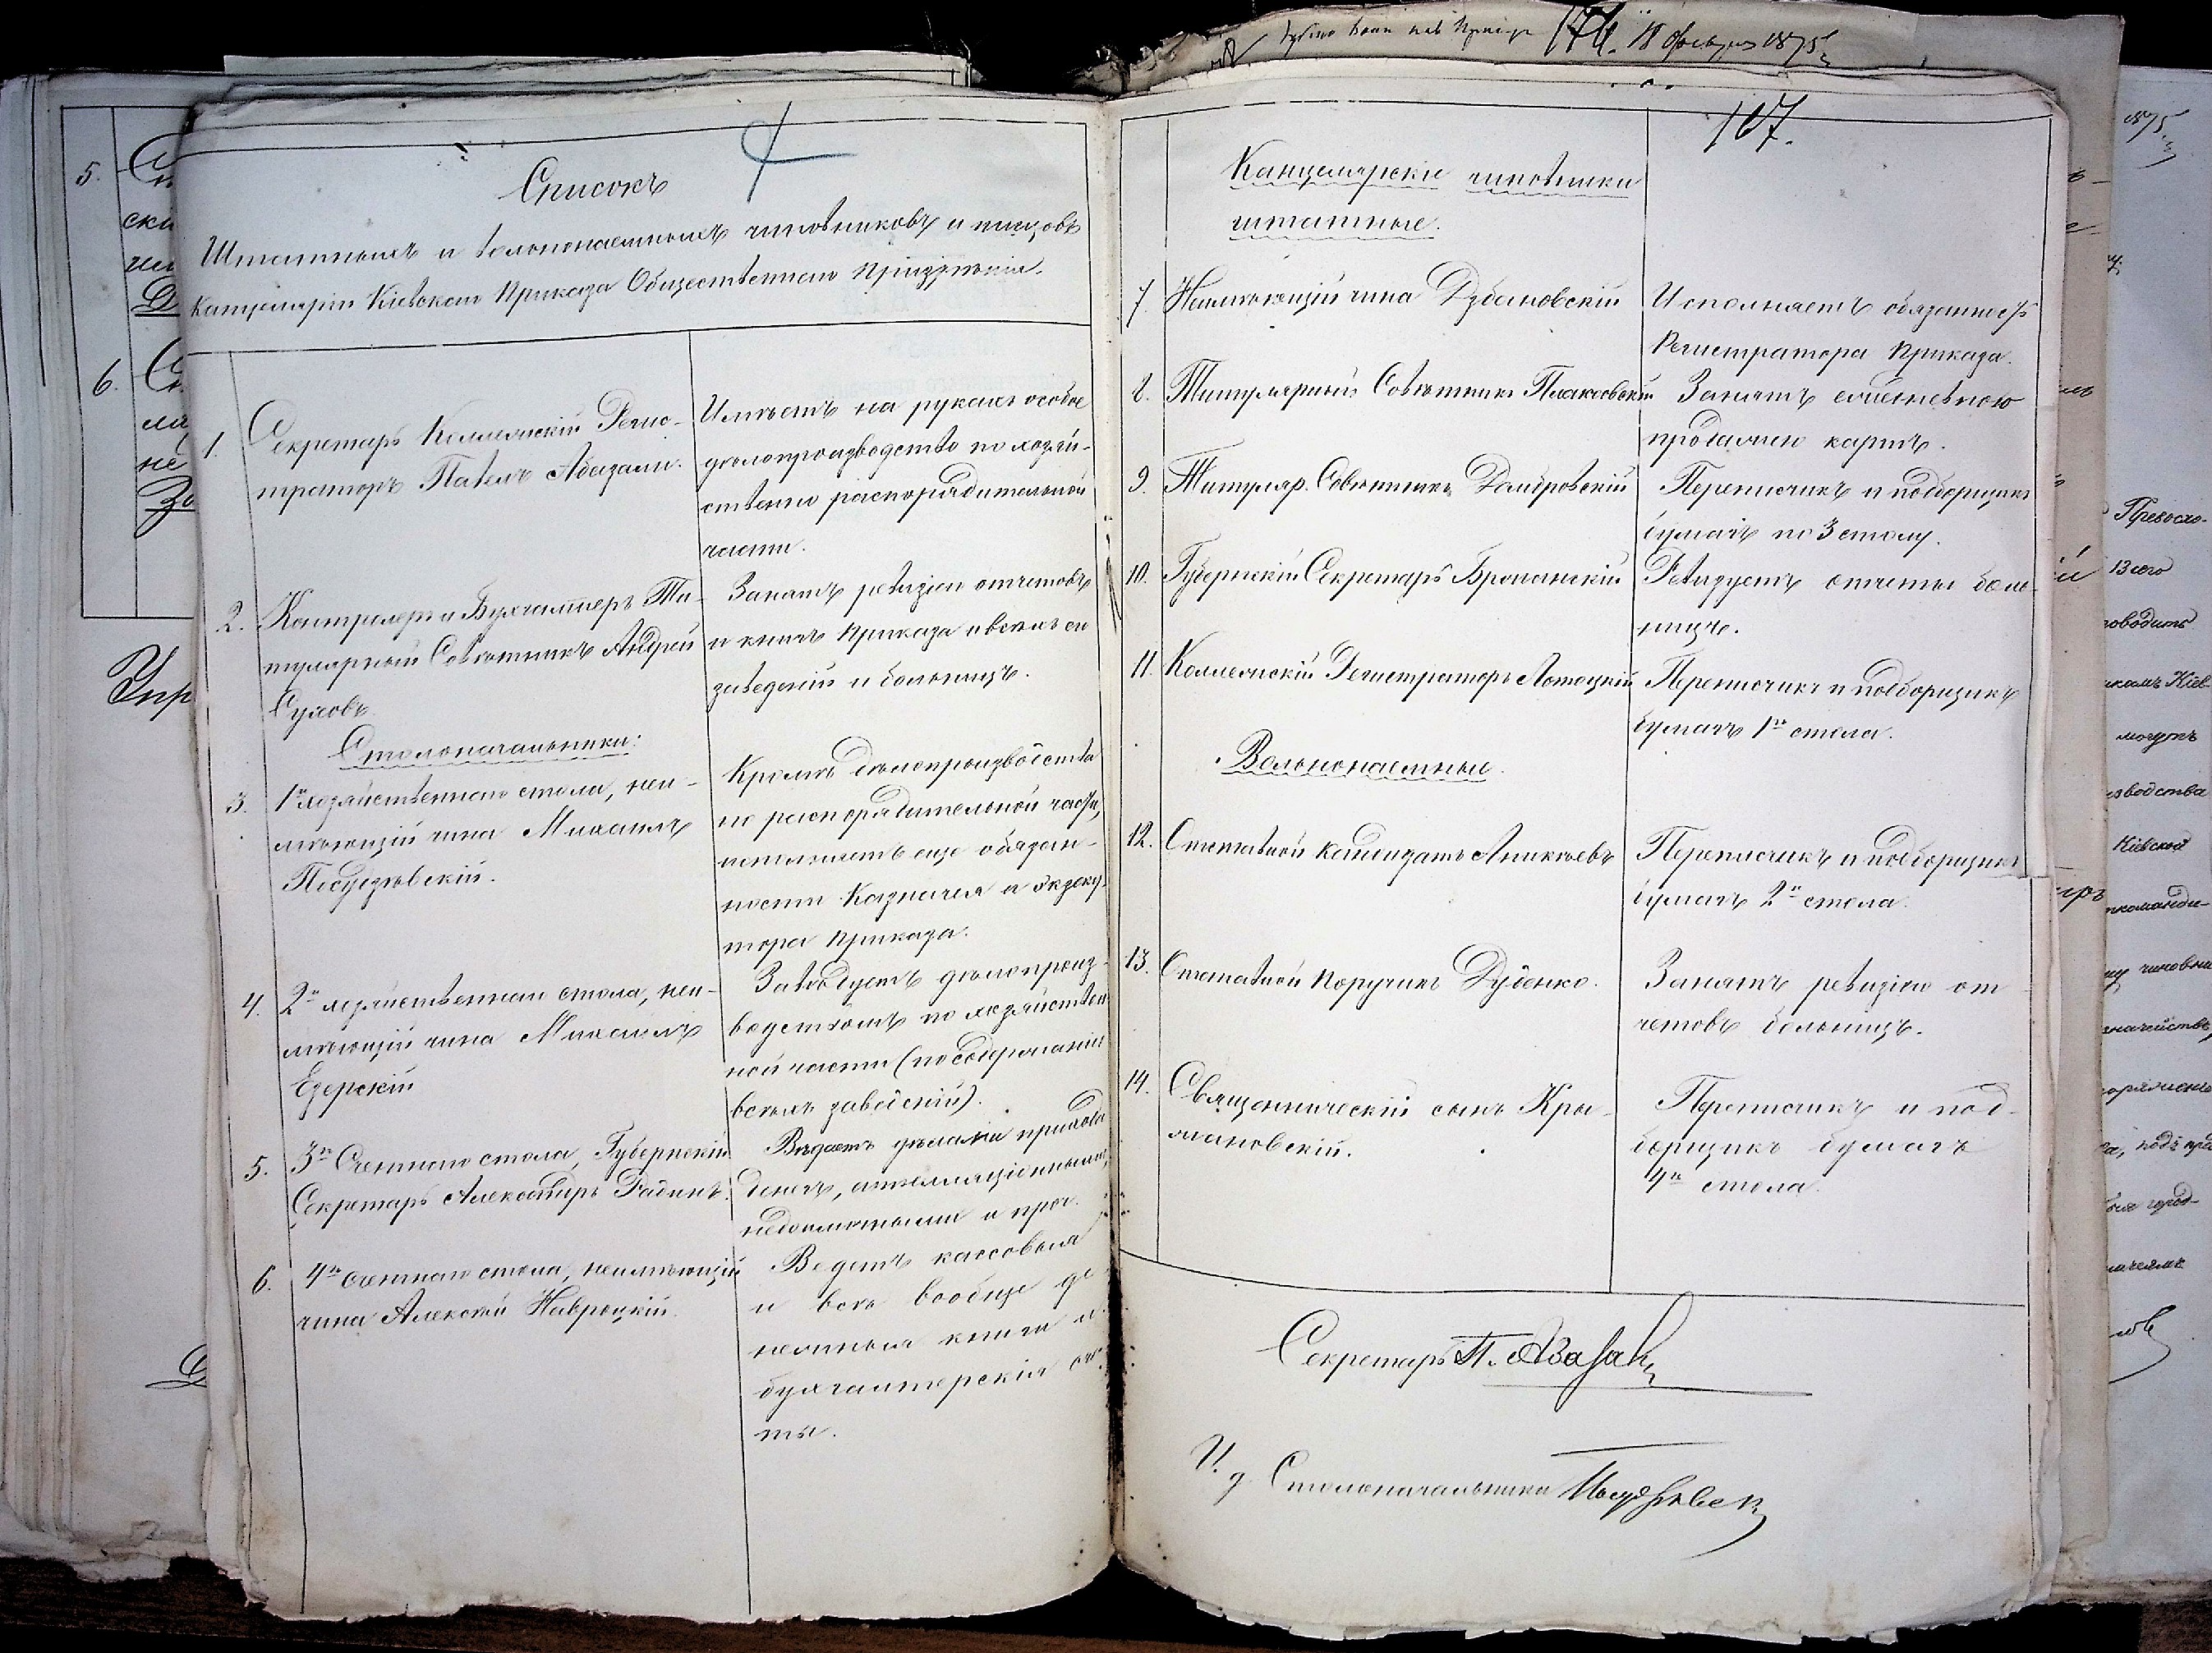 Списокъ
Штатныхъ и вольнонаемныхъ чиновниковъ и писцовъ
канцеляріи Кіевскаго Приказа Общественнаго Призрѣнія.
1. Секретарь Коллежскій Регис-
траторъ Павелъ Абазали.
Имѣетъ на рукахъ особое
дѣлопроизводство по хозяй-
ственно распорядительной
части.
2. Контролеръ и Бухгалтеръ Ти-
тулярный Совѣтникъ Андрей
Суховъ
Занятъ ревизіею отчетовъ
и книгъ Приказа и всѣхъ его
заведеній и больницъ.
Столоначальники:
3. 1го хозяйственнаго стола, неи-
мѣющій чина Михаилъ
Посудзѣвскій.
Кромѣ дѣлопроизводства
по распорядительной части,
исполняетъ еще обязан-
ности Казначея и экзеку-
тора Приказа.
4. 2го хозяйственнаго стола, неи-
мѣющій чина Михаилъ
Езерскій
Завѣдуетъ дѣлопроиз-
водствомъ по хозяйствен
ной части (по содержанію
всѣхъ заведеній).
5. 3го Счетнаго стола, Губернскій
Секретарь Александръ
Вѣдаетъ дѣлами прихода
денегъ, аппелляціонными,
недоимочными и проч.
6. 4го счетнаго стола, неимѣющій
чина Алексѣй Навроцкій.
Ведетъ кассовыя
и всѣ вообще де
нежныя книги и
бухгалтерскія сче
ты.
107.
Канцелярскіе чиновники
штатные.
7. Неимѣющій чина Дубановскій
Исполняетъ обязанность
Регистратора Приказа.
8. Титулярный Совѣтникъ Плаковскій
Занятъ ежедневною
продажею картъ.
9. Титуляр. Совѣтникъ Домбровскій
Переписчикъ и подборщикъ
бумагъ по 3 столу.
10. Губернскій Секретарь
Ревизуетъ отчеты боль
ницъ.
11. Коллежскій Регистраторъ Лотоцкій
Переписчикъ и подборщикъ
бумагъ 1го стола.
Вольнонаемные.
12. Отставной кандидатъ Аникѣевъ
Переписчикъ и подборщикъ
бумагъ 2го стола.
13. Отставной Поручикъ Дуденко.
Занятъ ревизіею от
четовъ больницъ.
14. Священническій сынъ Кры-
жановскій.
Переписчикъ и под-
борщикъ бумагъ
4го стола.
Секретарь П. Абазали
И. д. Столоначальника Посудзѣвскій
18 Февраля 1875 г.
5.
6.